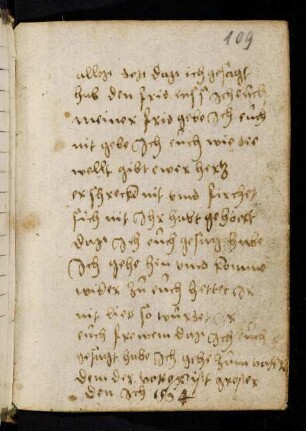 109
alles des daz ich gesagt
hab den frid lass ich euch
meinen frid gebe Ich euch
nit gebe Ich euch wie die
wellt gibt ewer hertz
erschreckh nit vnnd firchet
sich nit Ihr habt gehöert
daz Ich euch gesagt habe
Ich gehe hin vnnd komme
wider zu euch hettet Ir
mit lieb so würdet Ir
euch frewen daz Ich euch
gesagt habe Ich gehe zum vatter
dem der vatter ist grosser
den Ich 1594